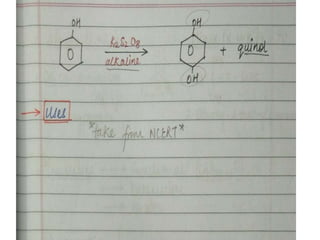 OH OH
K2S2O8
alkaline + quinol
OH
→ Uses
*take from NCERT*